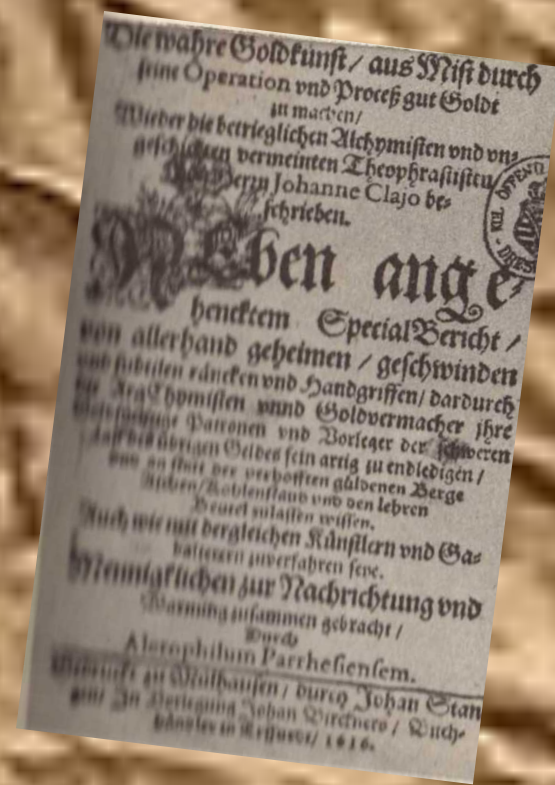 Die wahre Goldkunst / aus Mist durch
seine Operation vnd Proceß gut Goldt
zu machen /
Wieder die betrieglichen Alchymisten vnd vn⸗
geschickten vermeinten Theophrastisten
Herrn Johanne Clajo be⸗
schrieben.
Neben ange⸗
hencktem Special Bericht /
von allerhand geheimen / geschwinden
vnd subtilen räncken vnd Handgriffen / dardurch
die ArgChymisten vnnd Goldvermacher jhre
Patronen vnd Vorleger der schweren
Last des übrigen Geldes fein artig zu endledigen /
vnd an statt der verhofften güldenen Berge
Aschen / Kohlenstaub vnd den lehren
Beutel zulassen wissen.
Auch wie mit dergleichen Künstlern vnd Ga⸗
zuverfahren seye.
Menniglichen zur Nachrichtung vnd
Warnung zusammen gebracht /
Durch
Alethophilum Parrhesiensem.
Gedruckt zu Mülhausen / durch Johan Stan
In Verlegung Johan Birckners / Buch⸗
händler in Erffurdt / 1616.
ÖFFENTL
DRES